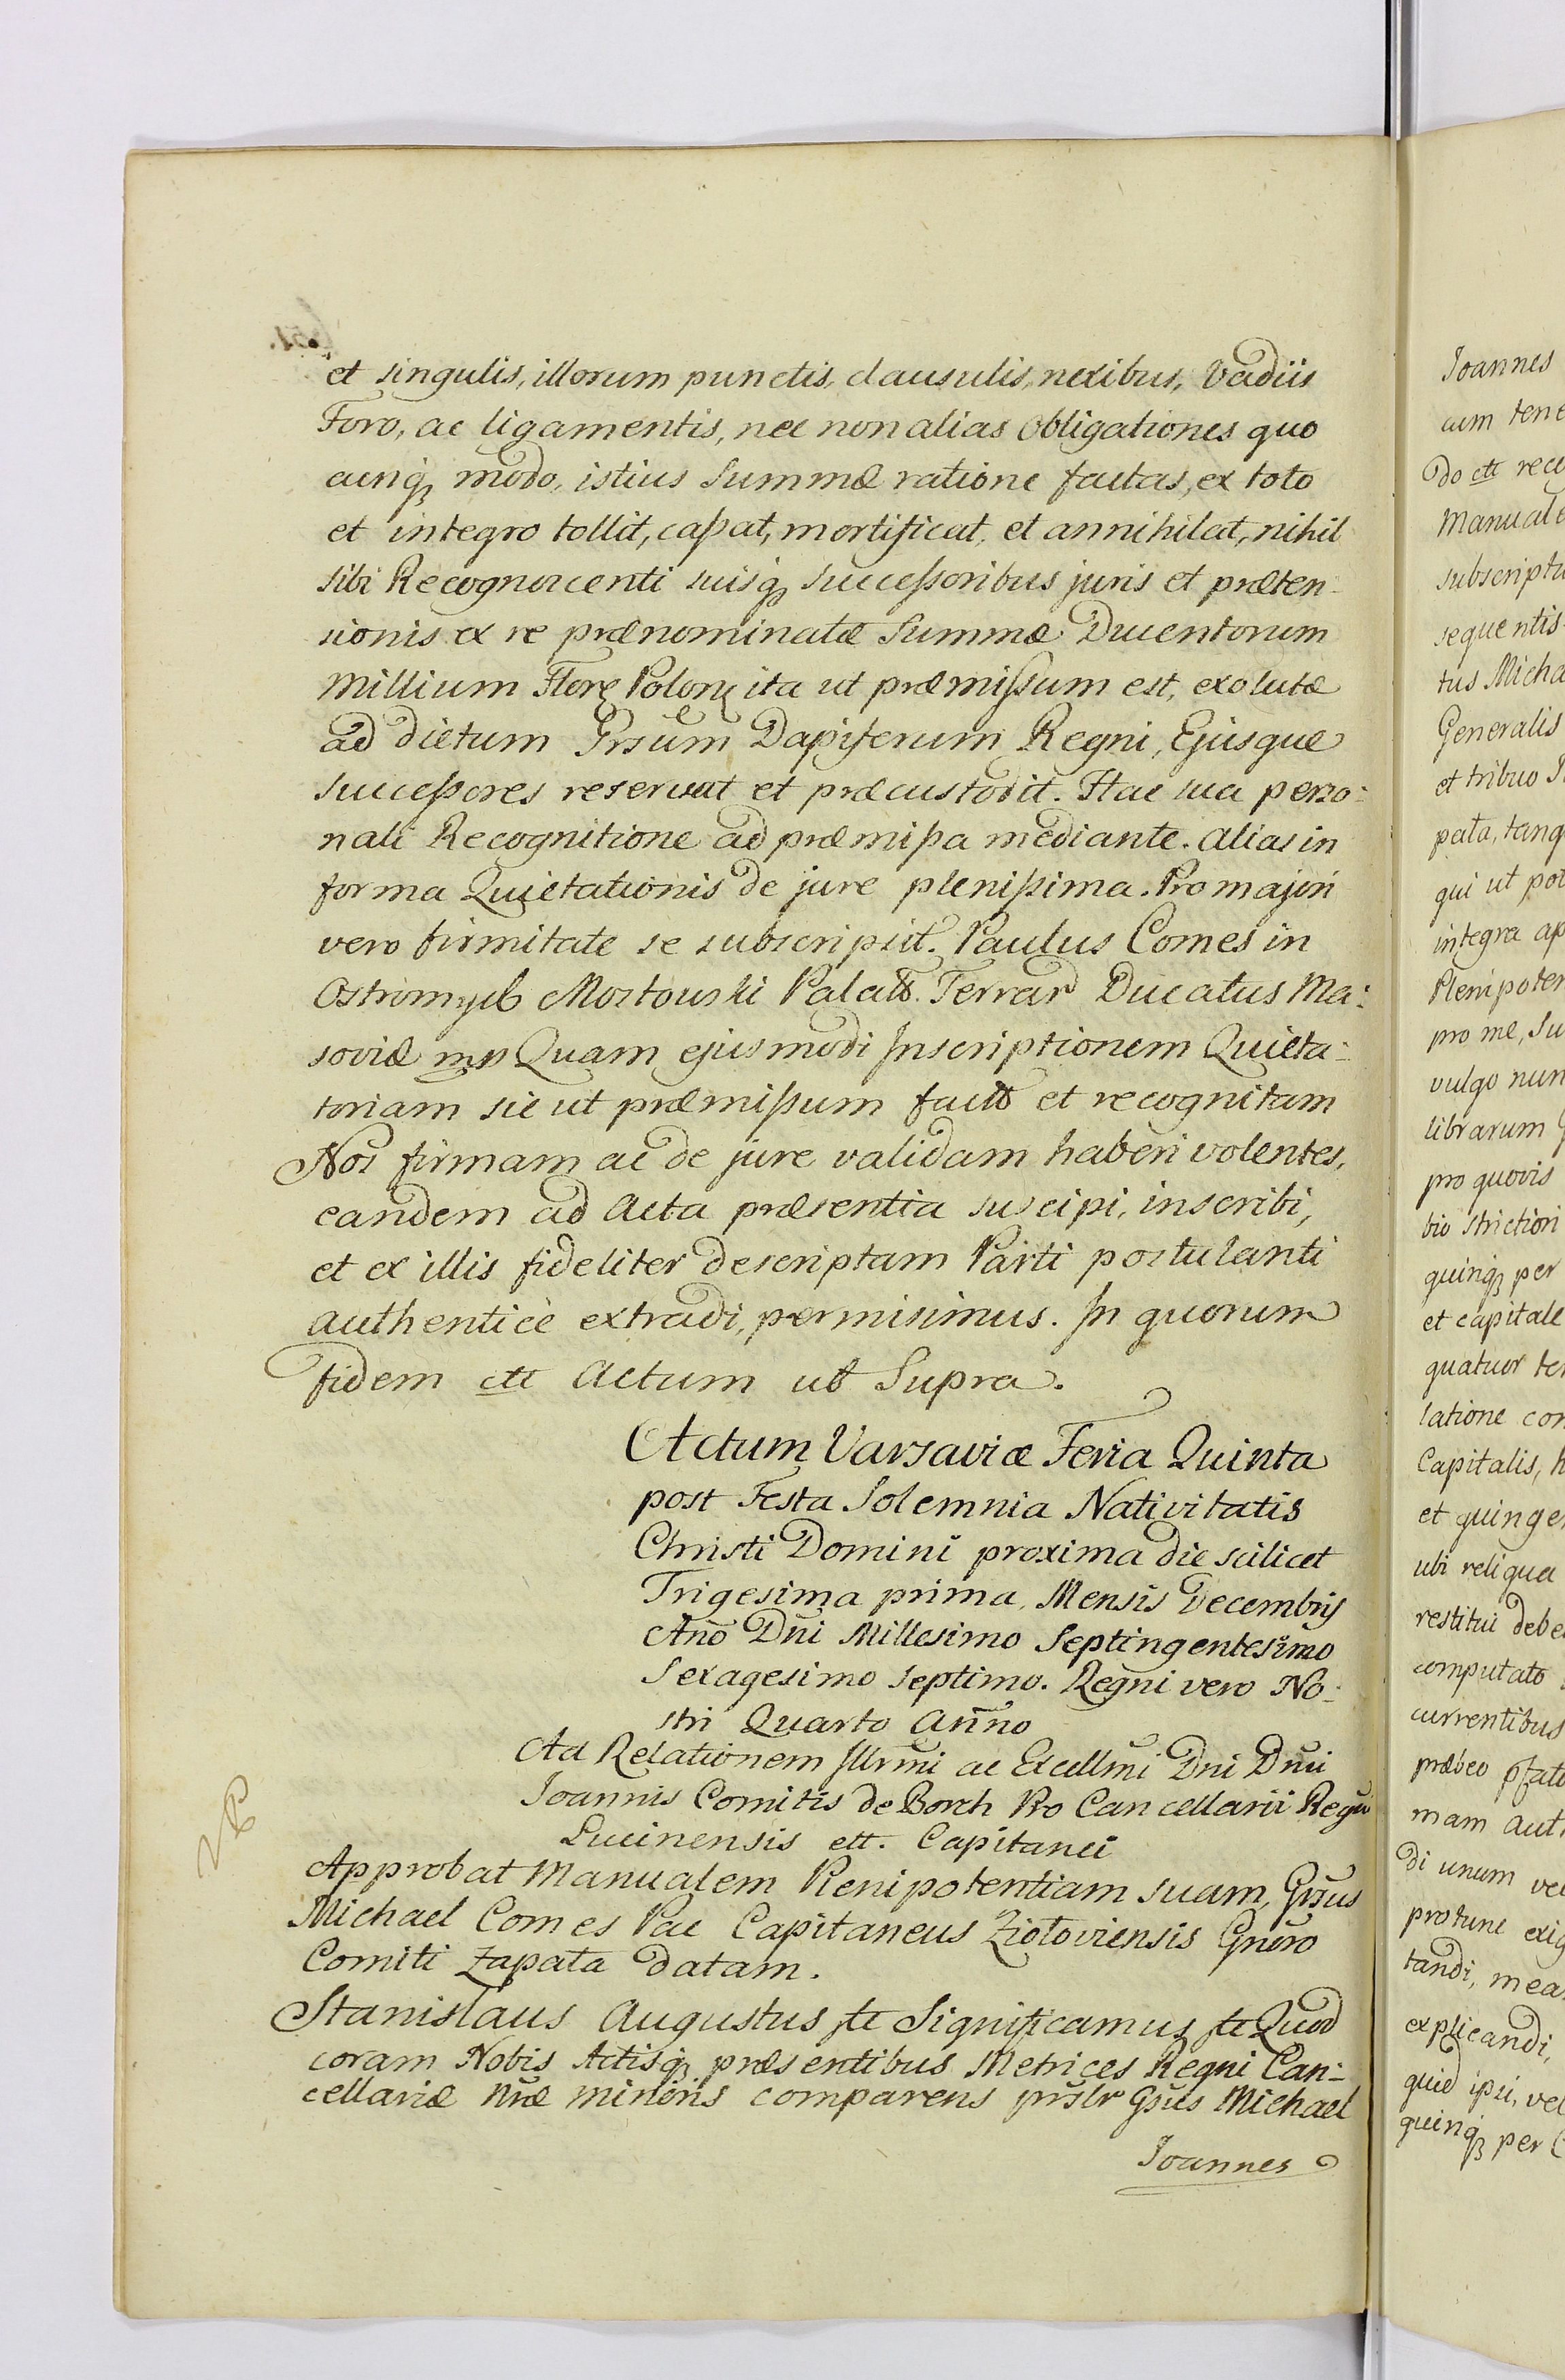 et singulis, illorum punctis, clausulis, nexibus, Vadiis
Foro, ac ligamentis, nec non alias obligationes quo
cunqꝫ modo, istius Summæ ratione factas, ex toto
et integro tollit, caßat, mortificat, et annihilat, nihil
sibi Recognoscenti suisqꝫ succeßoribus juris et præten-
sionis ex re prænominatæ Summæ Ducentorum
Millium Flor Polon ita ut præmißum est, exolutæ
ad dictum Grsum Dapiferum Regni, Ejusque
succeßores reservat et præcustodit. Hac sua perso:
nali Recognitione ad præmißa mediante. alias in
forma Quietationis de jure plenißima. Pro majori
vero firmitate se subscripsit. Paulus Comes in
Ostromęcb Mostowski Palatt. Terrar Ducatus Ma:
soviæ mp Quam ejusmodi Inscriptionem Quieta:
toriam sic ut præmißum fact et recognitam
Nos firmam ac de jure validam haberi volentes,
eandem ad Acta præsentia suscipi, inscribi,
et ex illis fideliter descriptam Parti postulanti
authenticè extradi, permisimus. In quorum
fidem ett Actum ut Supra.
Actum Varsaviæ Feria Quinta
post Festa Solemnia Nativitatis
Christi Domini proxima die scilicet
Trigesima prima, Mensis Decembris
Año Dñi Millesimo Septingentesimo
Sexagesimo septimo. Regni vero No:
stri Quarto Anno
Ad Relationem Illrmi ac Excellmi Dni Dnii
Joannis Comitis de Borch Pro Cancellarii Regni
Lucinensis ett. Capitanei
Approbat Manualem Plenipotentiam suam, Grsus
Michael Comes Pac Capitaneus Ziołoviensis Gnoro
Comiti Zapata datam.
Stanislaus Augustus ett Significamus ett Quod
coram Nobis Actisqꝫ præsentibus Metrices Regni Can:
cellariæ Nræ minoris comparens prsltr Gsus Michael
Joannes
Joannes
cum tene
do ett reco
Manuale
subscriptu
sequentis
tus Micha
Generalis
et tribuo
pata, tanq
qui ut pot
integra ap
Plenipoten
pro me, Su
vulgo nun
librarum
pro quovis
bio strictiori
quinqꝫ per
et capitale
quatuor te
latione con
Capitalis, h
et quinge
ubi reliqua
restitui debe
computato
currentibus
præbeo pfato
mam aut
di unum vel
protunc exig
tandi, mea
explicandi,
quid ipsi, vel
quinqꝫ per